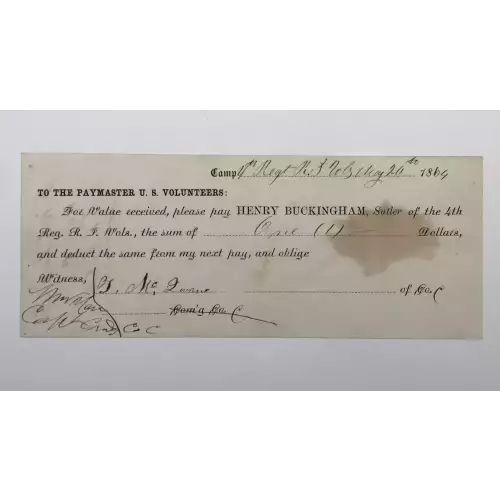 Camp 4th Regt R.I Vols May 26th 1864
TO THE PAYMASTER U. S. VOLUNTEERS:
For Value received, please pay HENRY BUCKINGHAM, Sutler of the 4th
Reg. R. I. Vols., the sum of One (1) Dollars,
and deduct the same from my next pay, and oblige
Witness,
T. Mc of Co. C
Com'g Co. C
Capt Co C